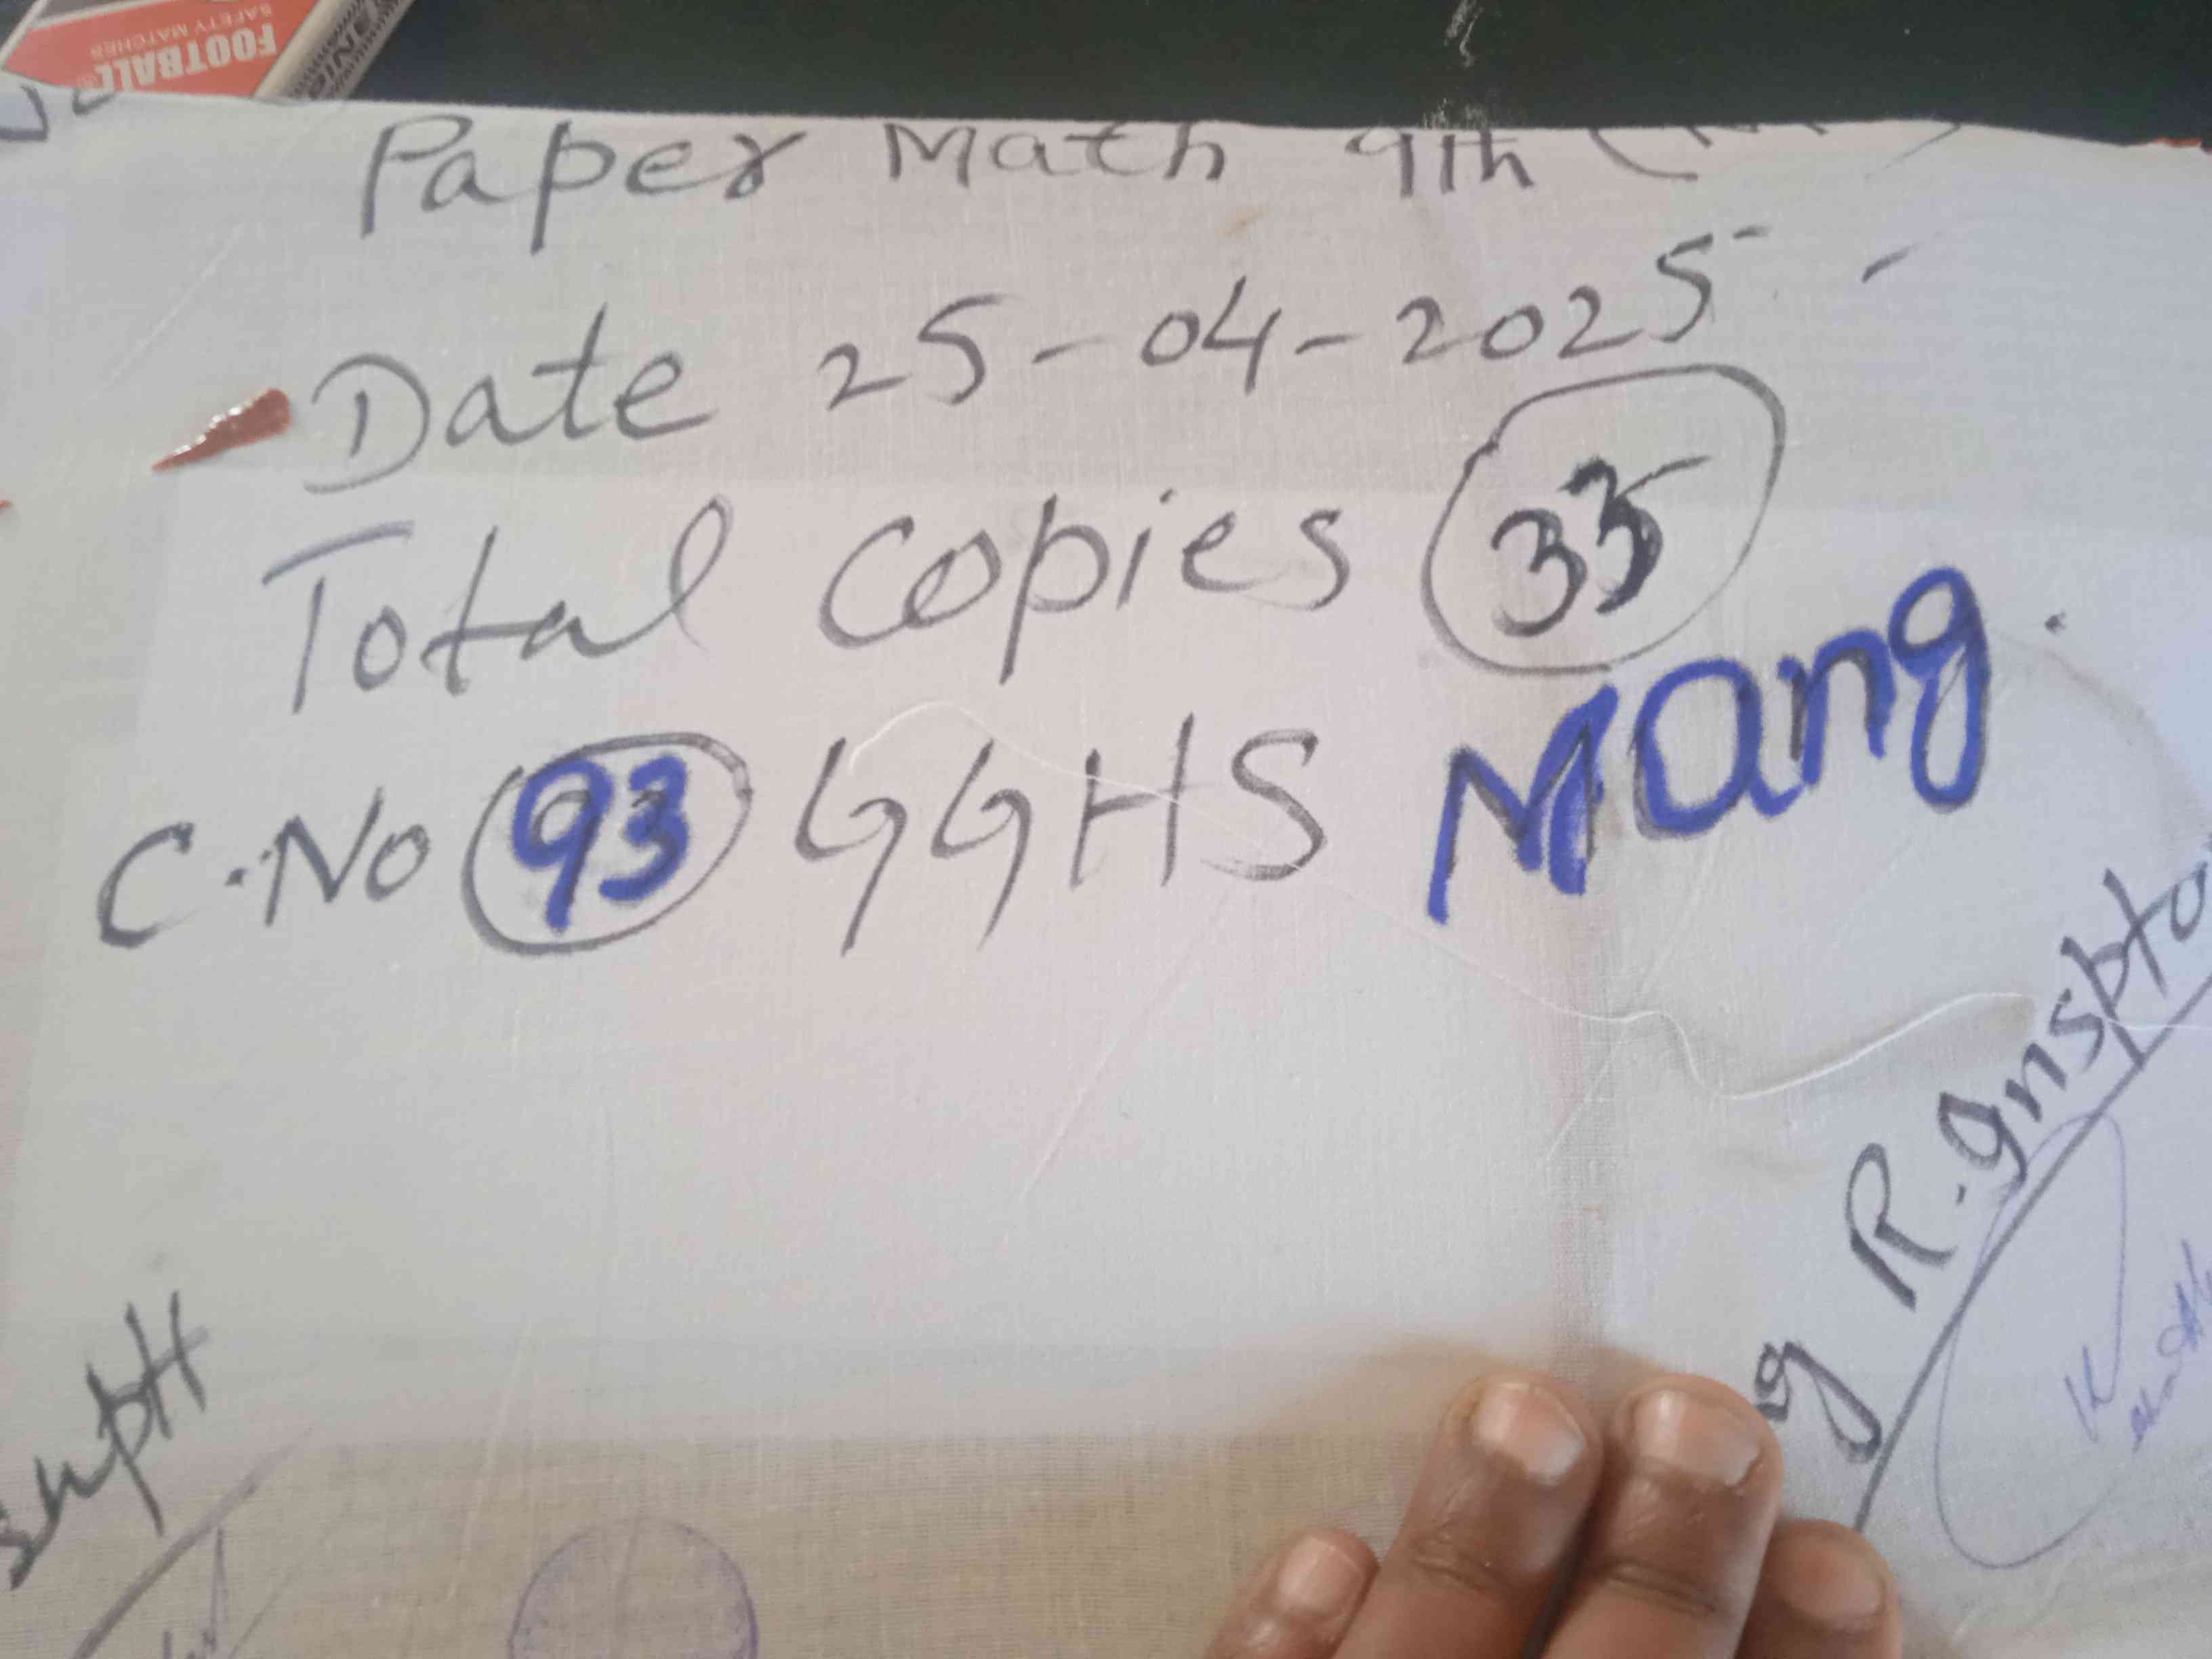 FOOTBALL
SAFETY MATCHES
Paper Math 9th
Date 25-04-2025
Total Copies 35
C.No 93 GGHS Mang.
R.Insptor
SupH